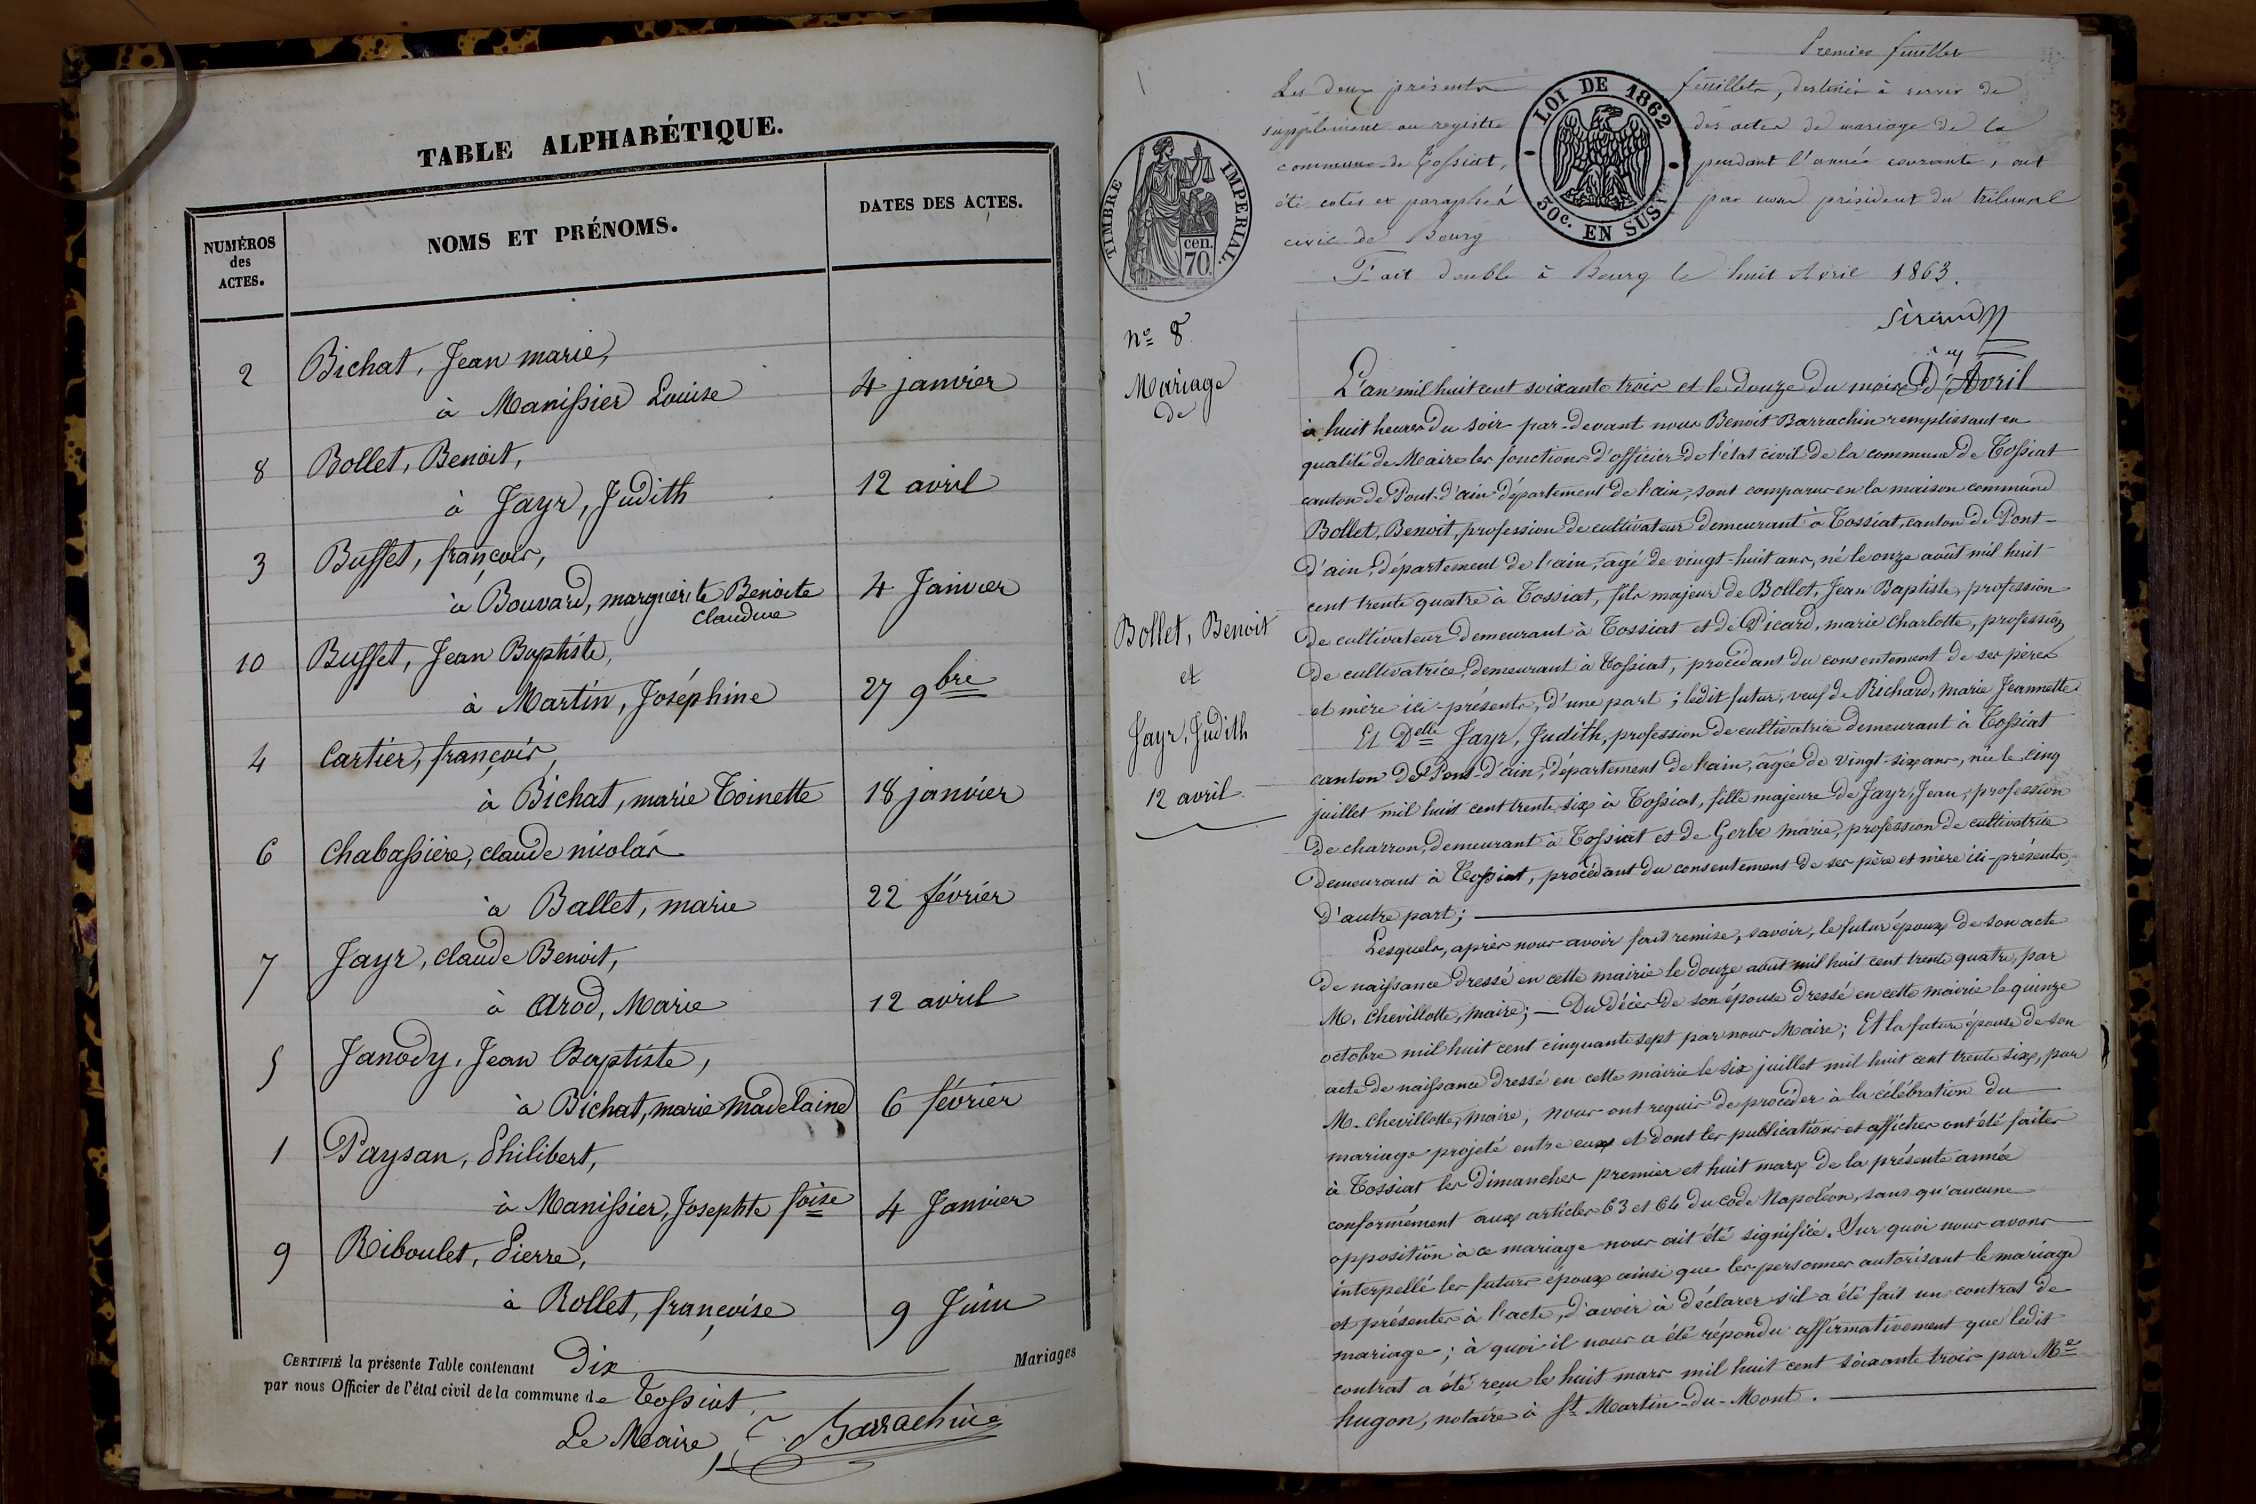 TABLE ALPHABÉTIQUE.
NUMÉROS
des
ACTES.
NOMS ET PRÉNOMS.
DATES DES ACTES.
2 Bichat, Jean marie,
à Manissier Louise 4 janvier
8 Bollet, Benoit,
à Jayr, Judith 12 avril
3 Buffet, françois,
à Bouvard, marguerite Benoite 4 Janvier
Claudine
10 Buffet, Jean Baptiste,
à Martin, Joséphine 27 9bre
4 Cartier, françois,
à Bichat, marie Toinette 18 janvier
6 Chabassière, claude nicolas
à Ballet, marie 22 février
7 Jayr, claude Benoit,
à Arod, Marie 12 avril
5 Janody, Jean Baptiste,
à Bichat, marie madelaine 6 février
1 Paysan, Philibert,
à Manissier, Josephte foise 4 Janvier
9 Riboulet, Pierre,
à Rollet, françoise 9 Juin
CERTIFIÉ la présente Table contenant Dix Mariages
par nous Officier de l'état civil de la commune de Tossiat,
Le Maire, Barrachin
Premier feuillet
Les deux présents feuillets, destinés à servir de
supplément au registre des actes de mariage de la
commune de Tossiat, pendant l'année courante, ont
été cotés et paraphés par nous président du tribunal
civil de Bourg
Fait double à Bourg le huit Avril 1863.
TIMBRE IMPERIAL.
cen.
70
LOI DE 1862
50c. EN SUS
Nº 8.
Mariage
de
Bollet, Benoit
et
Jayr, Judith
12 avril
L'an mil huit cent soixante trois et le douze du mois d'Avril
à huit heures du soir par-devant nous Benoit Barrachin remplissant en
qualité de Maire les fonctions d'officier de l'état civil de la commune de Tossiat
canton de Pont-d'ain département de l'ain, sont comparus en la maison commune
Bollet, Benoit, profession de cultivateur demeurant à Tossiat, canton de Pont-
d'ain, département de l'ain, âgé de vingt-huit ans, né le onze août mil huit-
cent trente quatre à Tossiat, fils majeur de Bollet, Jean Baptiste, profession
de cultivateur demeurant à Tossiat et de Picard, marie charlotte, profession
de cultivatrice, demeurant à Tossiat, procédant du consentement de ses père
et mère ici-présents, d'une part; ledit futur, veuf de Richard, marie Jeannette
Et Delle Jayr, Judith, profession de cultivatrice demeurant à Tossiat
canton de Pont-d'ain, département de l'ain, âgée de vingt-six ans, née le cinq
juillet mil huit cent trente six à Tossiat, fille majeure de Jayr, Jean, profession
de charron, demeurant à Tossiat et de Gerbe marie, profession de cultivatrice
demeurant à Tossiat, procédant du consentement de ses père et mère ici-présents,
d'autre part;
Lesquels, après nous avoir fait remise, savoir, le futur époux de son acte
de naissance dressé en cette mairie le douze août mil huit cent trente quatre, par
M. Chevillotte, maire; — Du décès de son épouse dressé en cette mairie le quinze
octobre mil huit cent cinquante sept par nous Maire; Et la future épouse de son
acte de naissance dressé en cette mairie le six juillet mil huit cent trente six, par
M. Chevillotte, maire, nous ont requis de procéder à la célébration du
mariage projeté entre eux et dont les publications et affiches ont été faites
à Tossiat les dimanches premier et huit mars de la présente année
conformément aux articles 63 et 64 du code Napoléon, sans qu'aucune
opposition à ce mariage nous ait été signifiée. Sur quoi nous avons
interpellé les futurs époux ainsi que les personnes autorisant le mariage
et présentes à l'acte, d'avoir à déclarer s'il a été fait un contrat de
mariage; à quoi il nous a été répondu affirmativement que ledit
contrat a été reçu le huit mars mil huit cent soixante trois par Me
hugon, notaire à St Martin-du-Mont.